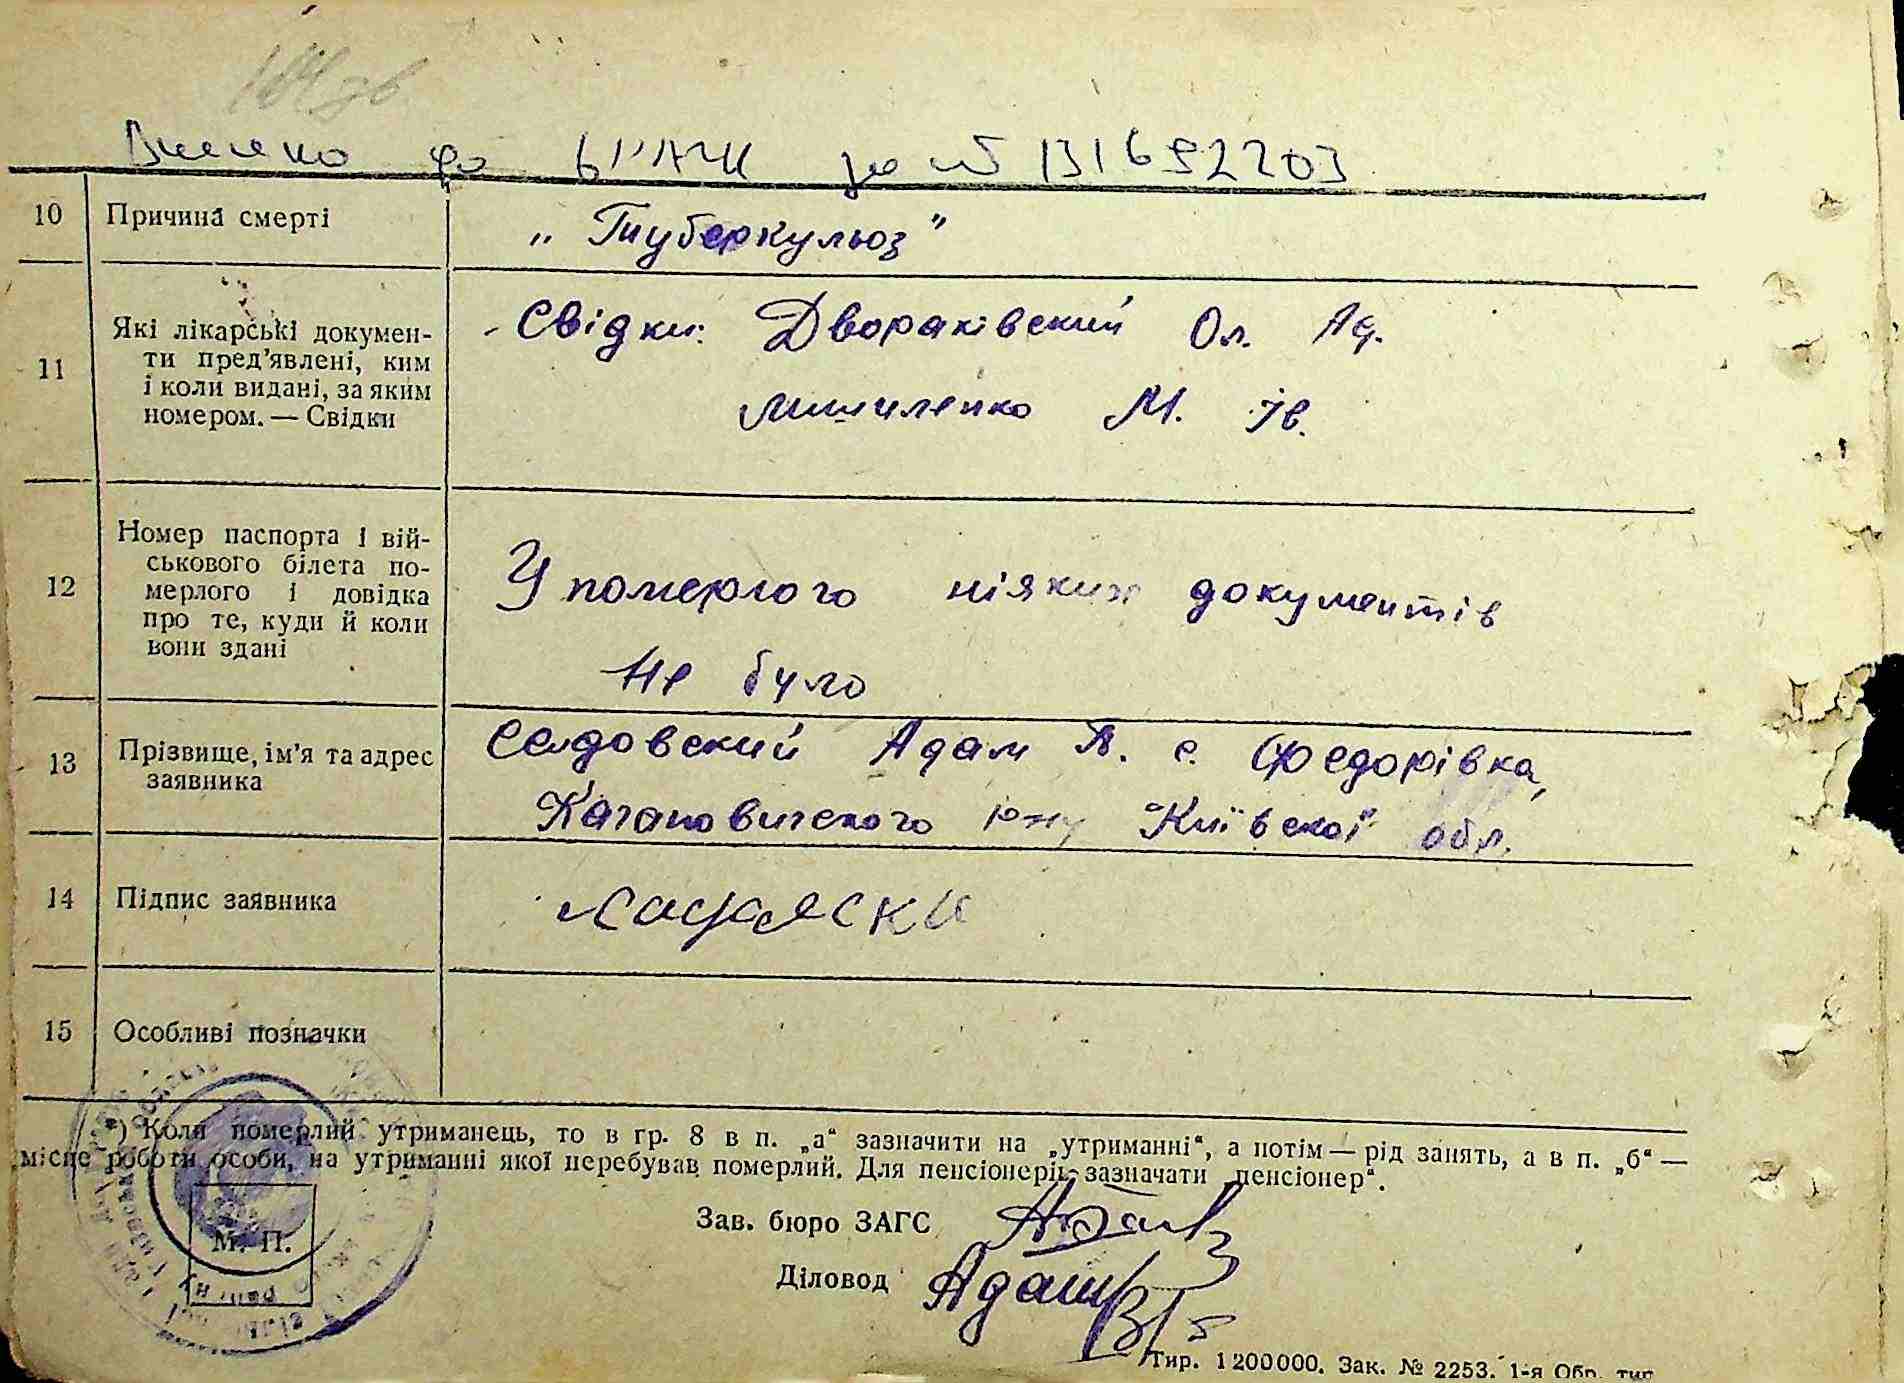 Внесено до ДРАЦС за № 131692203
10 Причина смерті „Туберкульоз"
11 Які лікарські докумен-
ти пред'явлені, ким
і коли видані, за яким
номером. — Свідки
Свідки: Двораківский Ол. Ад.
М. Ів.
12 Номер паспорта і вій-
ськового білета по-
мерлого і довідка
про те, куди й коли
вони здані
У померлого ніяких документів
не було
13 Прізвище, ім'я та адрес
заявника
Садовский Адам П. с. Федорівка,
Кагановичского р-ну Київскої обл.
14 Підпис заявника
15 Особливі позначки
*) Коли померлий утриманець, то в гр. 8 в п. „а“ зазначити на „утриманні“, а потім — рід занять, а в п. „б“ —
місце роботи особи, на утриманні якої перебував померлий. Для пенсіонерів зазначати „пенсіонер“.
М. П.
Зав. бюро ЗАГС
Діловод
Тир. 1200000. Зак. № 2253. 1-я Обр. тип